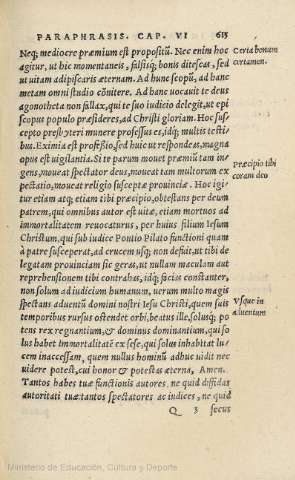 PARAPHRASIS. CAP. VI 615
Neq; mediocre præmium est propositũ. Nec enim hoc
agitur, ut hic momentaneis, falsisq; bonis ditescas, sed
ut uitam adipiscaris æternam. Ad hunc scopũ, ad hanc
metam omni studio cõnitere. Ad hanc uocauit te deus
agonotheta non fallax, qui te suo iudicio delegit, ut epi
scopus populo præsideres, ad Christi gloriam. Hoc sus
cepto presbyteri munere professus es, idq; multis testi
bus. Eximia est professio, sed huic ut respondeas, magna
opus est uigilantia. Si te parum mouet præmiũ tam in
gens, moueat spectator deus, moueat tam multorum ex
pectatio, moueat religio susceptæ prouinciæ. Hoc igi/
tur etiam atq; etiam tibi præcipio, obtestans per deum
patrem, qui omnibus autor est uitæ, etiam mortuos ad
immortalitatem reuocaturus, per huius filium Iesum
Christum, qui sub iudice Pontio Pilato functioni quam
à patre susceperat, ad crucem usq; non defuit, ut tibi de
legatam prouinciam sic geras, ut nullam maculam aut
reprehensionem tibi contrahas, idq; facias constanter,
non solum ad iudicium humanum, uerum multo magis
spectans aduentũ domini nostri Iesu Christi, quem suis
temporibus rursus ostendet orbi, beatus ille, solusq; po
tens rex regnantium, & dominus dominantium, qui so
lus habet immortalitatẽ ex sese, qui solus inhabitat lu/
cem inaccessam, quem nullus hominũ adhuc uidit nec
uidere potest, cui honor & potestas æterna, Amen.
Tantos habes tuæ functionis autores, ne quid diffidas
autoritati tuæ: tantos spectatores ac iudices, ne quid
Q 3 secus
Certa bonam
certamen.
Præcipio tibi
coram deo
Vsque in
aduentum
Ministerio de Educación, Cultura y Deporte